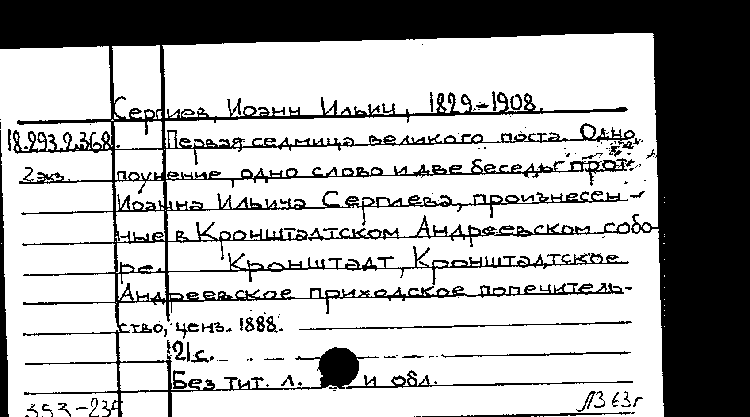 Сергиев, Иоанн Ильич, 1829-1908.
18.293.2.368. Первая седмица великого поста. Одно
2 экз. поучение, одно слово и две беседы прот.
Иоанна Ильича Сергиева, произнесен-
ные в Кронштадтском Андреевском собо-
ре. Кронштадт, Кронштадтское
Андреевское приходское попечитель-
ство, ценз. 1888.
21 с.
Без тит. л. и обл.
353-234 ЛЗ 63г